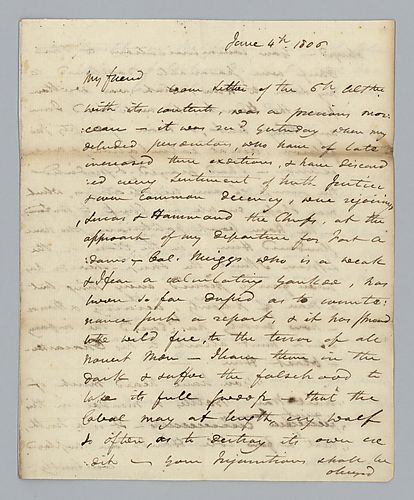 June 4th 1806
My friend your Letter of the 6th Ulto
with its contents, was a precious mor
ceau — it was recd yesterday when my
deluded persecutors, who have of late
increased their exertions, & have discard
ed every Sentiment of Truth Justice,
& even Common Decency, were rejoicing,
Lucas & Hammond the Chiefs, at the
approach of my departure for Fort A
dams — Col. Meiggs who is a weak
& I fear a calculating Yankee, has
been so far duped as to counte:
nance such a report, & it has spread
like wild fire, to the terror of all
honest Men — I leave them in the
dark & suffer the falsehood to
take its full swoop — that the
Cabal may at length cry wolf
so often, as to destroy its own cre
dit — your Injunctions shall be
obeyed